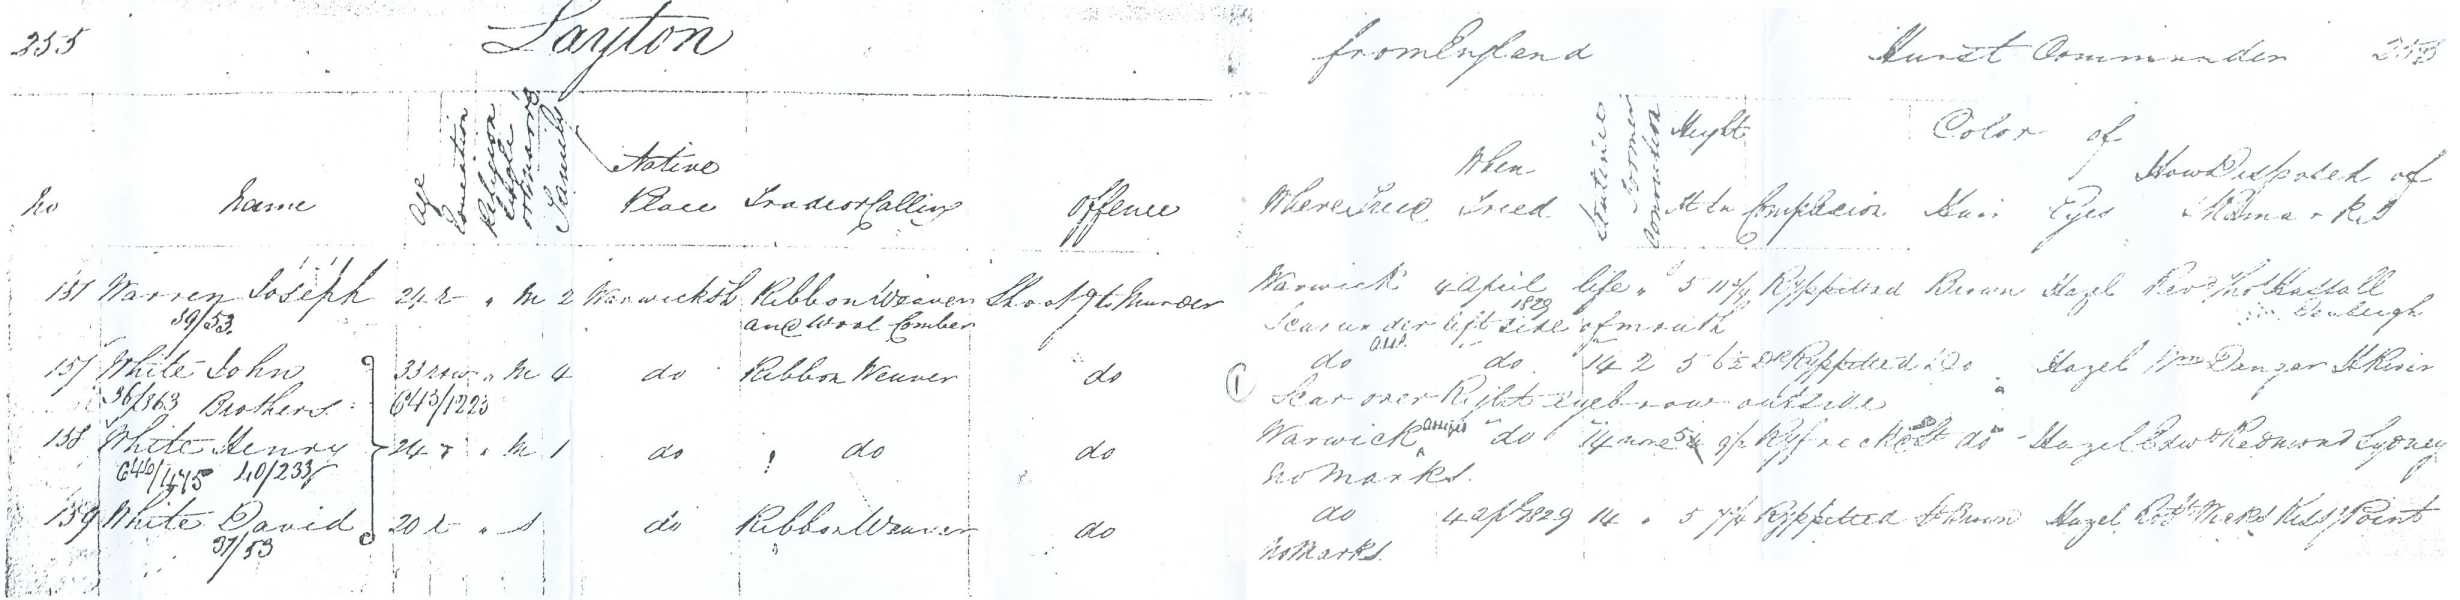 255 Layton from England Hurst Commander 255
No Name Age Education Religion Single or Married Family Native Place Trade or Calling Offence Where Tried When Tried Sentence Former Conviction Height Ft In Complexion Color of Hair Eyes How Disposed of & Remarks
Warren Joseph 24 R " M 2 Warwicksh Ribbon Weaver Shootg to Murder Warwick 4 April life " 5 Ry ppitted Brown Hazel Revd Thos Hassall
39/53. and Wool Comber 1829
Scar under left side of mouth
157 White John 33 " M 4 do Ribbon Weaver do do do 14 2 5 6½ Ry ppitted Do Hazel Wm Dangar H River
36/363 Brothers 643/1223 Scar over Right eyebrow outside
158 White Henry 24 " M 1 do do do Warwick do 14 none Ry freckd do Hazel Edwd Redmond Sydney
646/475 40/233 No Marks.
159 White David 20 R " S do Ribbon Weaver do do 4 Apl 1829 14 " 5 7¼ Ry ppitted Lt Brown Hazel Kissg Point
37/53 No Marks.